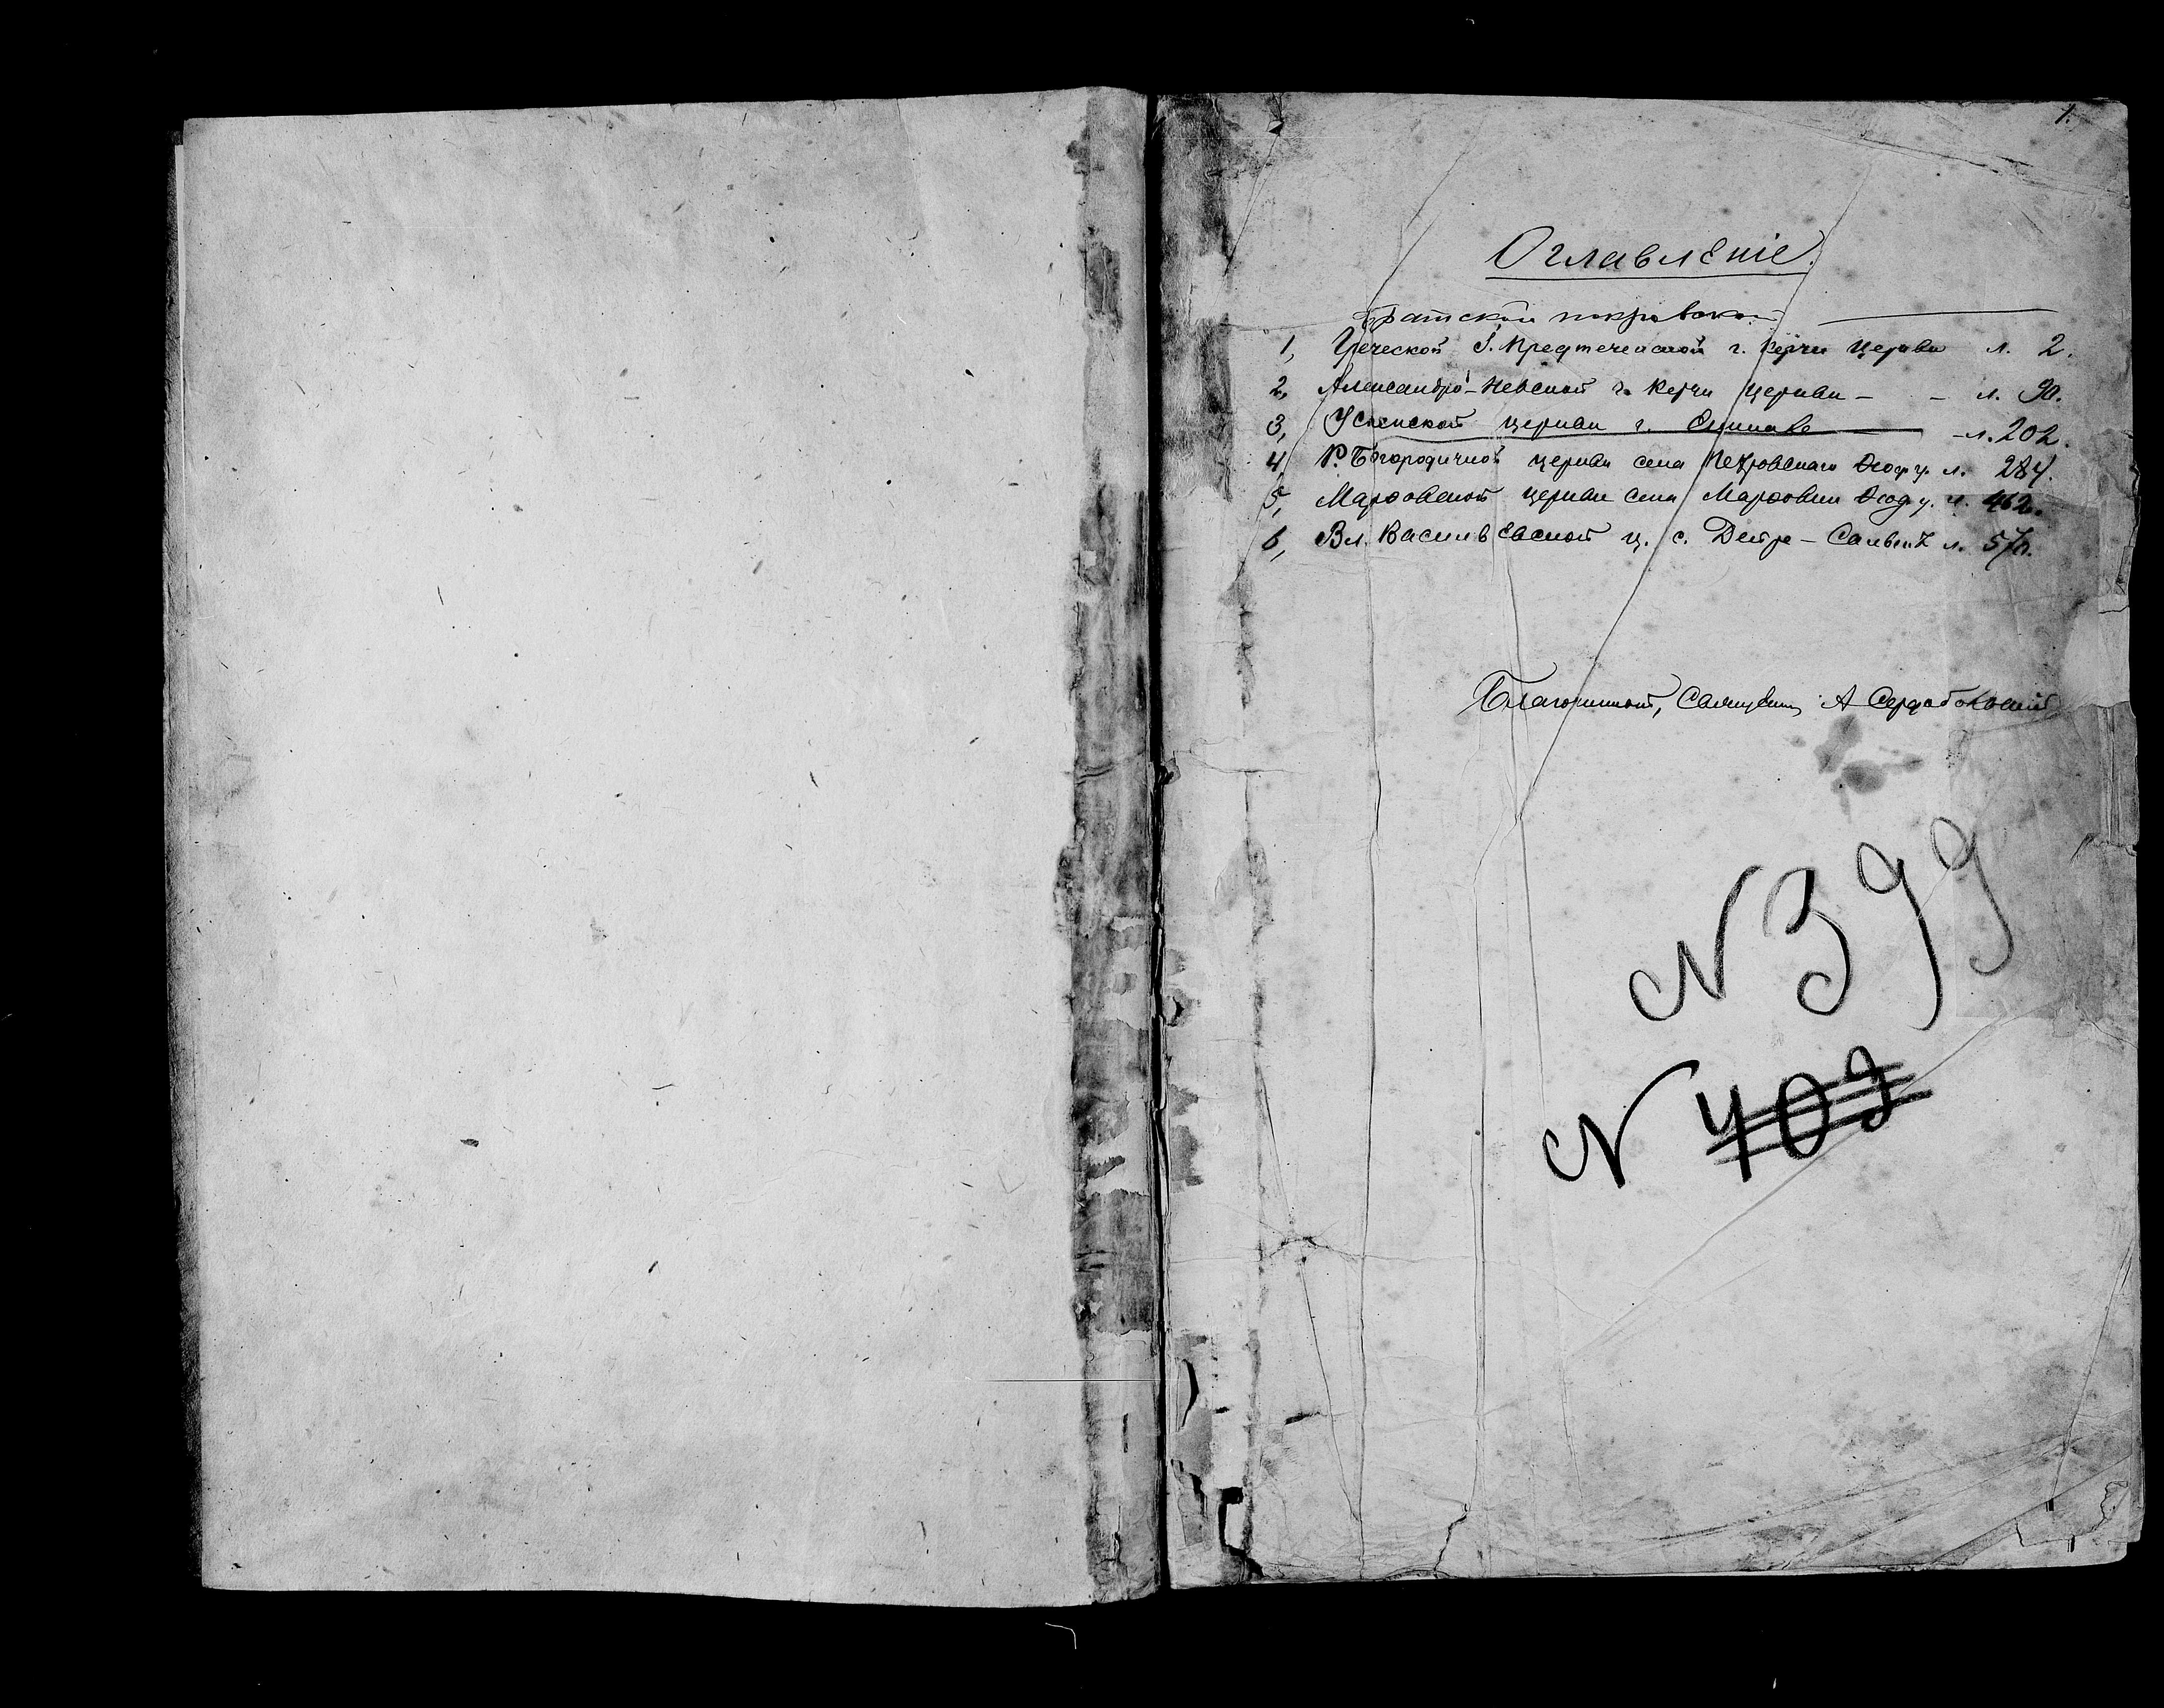 1.
Оглавленіе.
Братской покровской
1, Греческой І. Предтеченской г. Керчи Церкви л. 2.
2, Александро-Невской г. Керчи церкви - - л. 90.
3, Успенской церкви г. - л. 202.
4, Р. Богородичной церкви села Петровскаго Ѳеод. у. л. 284.
5, Марфовской церкви села Марфовки Ѳеод. у. л. 462.
6, Вл. Васильевской ц. с. Дейре - л. 570.
Благочинный, Священникъ А
N 399
N 403